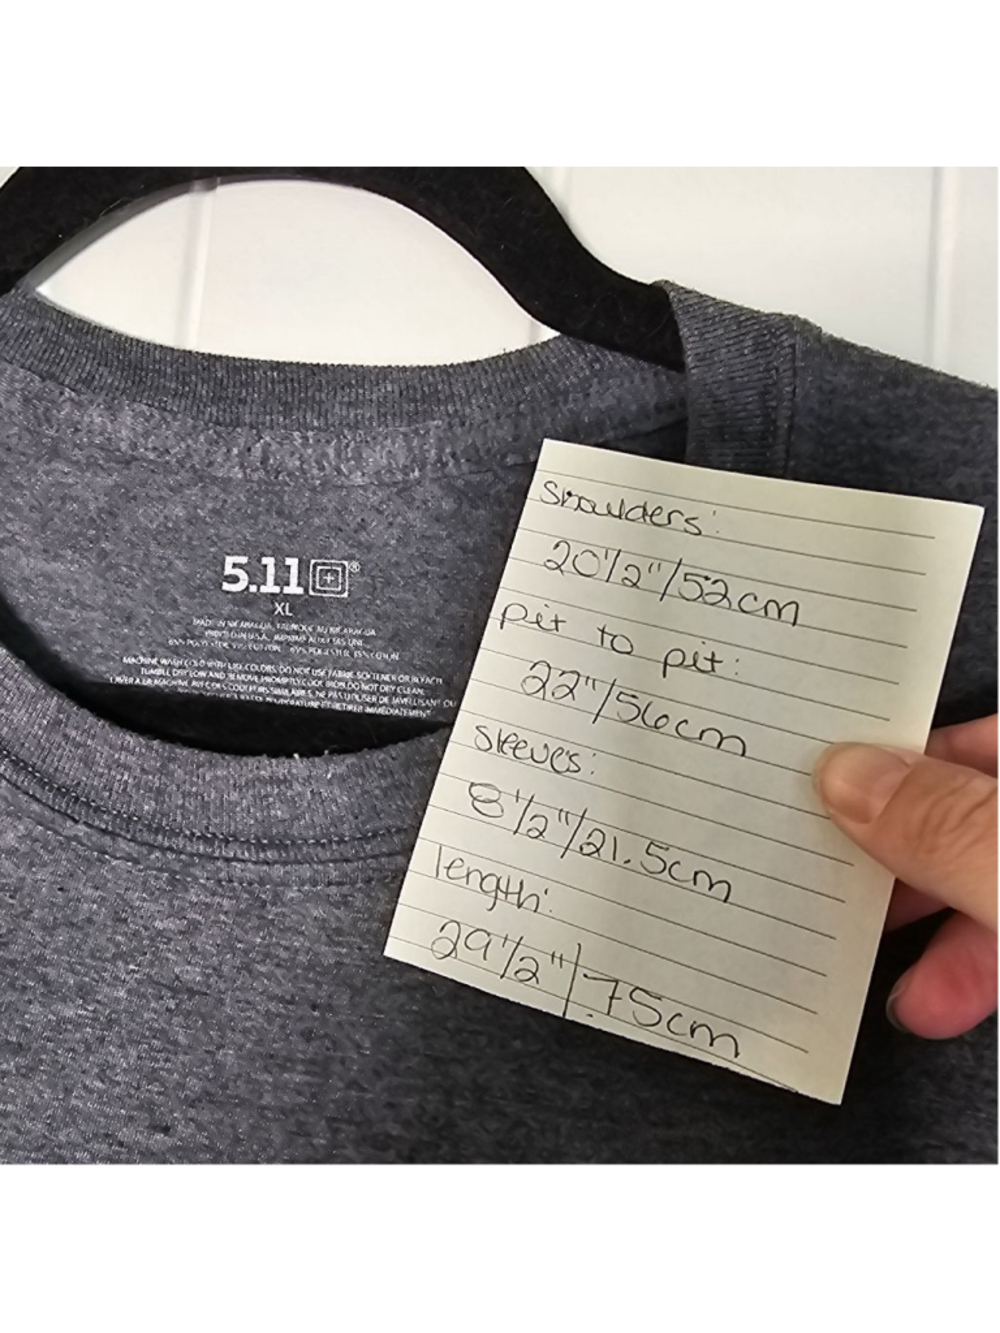 5.11®
XL
MADE IN NICARAGUA, FABRIQUE AU NICARAGUA
PRINTED IN U.S.A.
MACHINE WASH COLD WITH LIKE COLORS, DO NOT USE FABRIC SOFTENER OR BLEACH
TUMBLE DRY LOW AND REMOVE PROMPTLY, COOL IRON, DO NOT DRY CLEAN
shoulders:
20 1/2"/52cm
pit to pit:
22"/56cm
sleeves:
8 1/2"/21.5cm
length:
29 1/2"/75cm